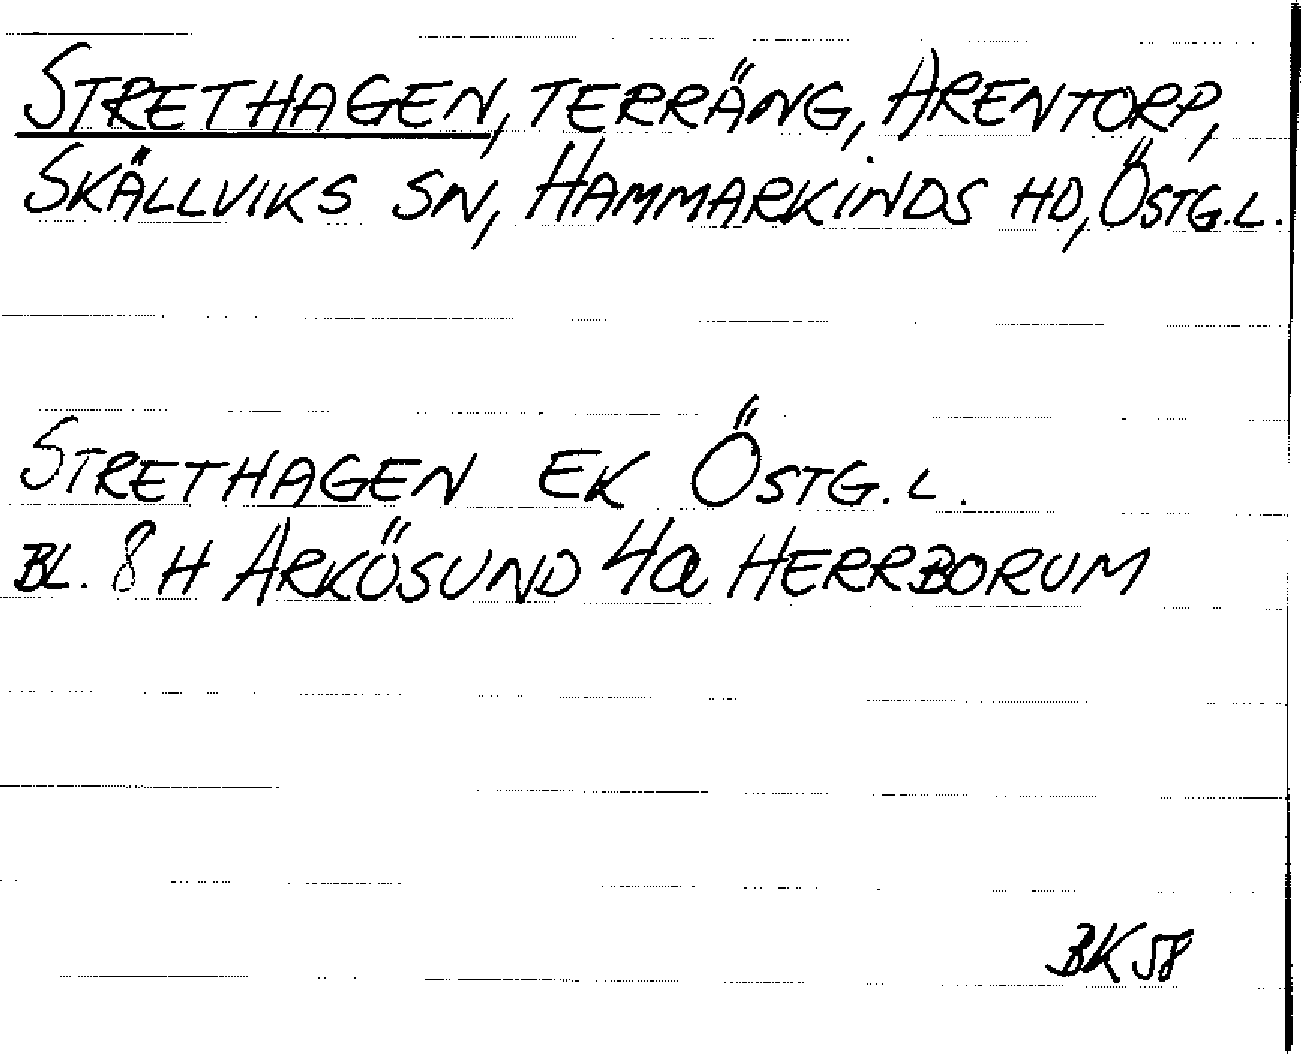 STRETHAGEN, TERRÄNG, ARENTORP,
SKÄLLVIKS SN, HAMMARKINDS HD, ÖSTG.L.
STRETHAGEN EK ÖSTG.L.
BL. 8 H ARKÖSUND 4a HERRBORUM
BK 58